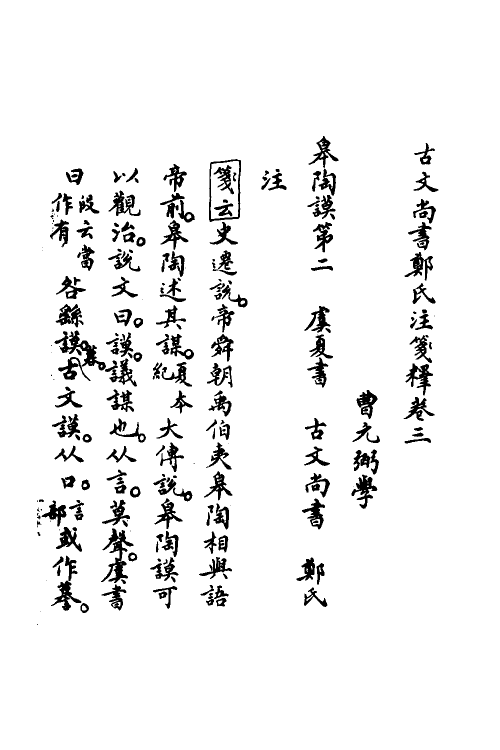 古文尚書鄭氏注箋釋卷三
曹元弼學
皋陶謨第二　虞夏書　古文尚書　鄭氏
注
箋云史遷說。帝舜朝禹伯夷皋陶相與語
帝前。皋陶述其謀。夏本紀大傳說。皋陶謨可
以觀治。說文曰。謨。議謀也。从言。莫聲。虞書
曰段云當作有咎繇謨。古文謨。从口。言部或作